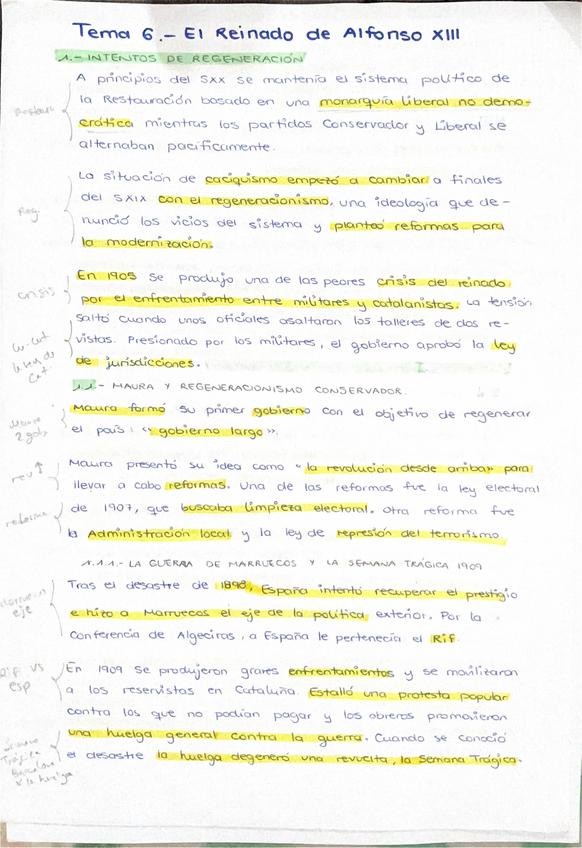 Tema 6.- El Reinado de Alfonso XIII
1.- INTENTOS DE REGENERACIÓN
A principios del SXX se mantenía el sistema político de
la Restauración basado en una monarquía liberal no demo-
crática mientras los partidos Conservador y Liberal se
alternaban pacíficamente.
Restaura
La situación de caciquismo empezó a cambiar a finales
del SXIX con el regeneracionismo, una ideología que de-
nunció los vicios del sistema y planteó reformas para
la modernización.
Reg.
En 1905 se produjo una de las peores crisis del reinado
por el enfrentamiento entre militares y catalanistas. La tensión
saltó cuando unos oficiales asaltaron los talleres de dos re-
vistas. Presionado por los militares, el gobierno aprobó la ley
de jurisdicciones.
crisis
Cu-cut
la veu de
Cat.
1.1.- MAURA Y REGENERACIONISMO CONSERVADOR.
Maura formó su primer gobierno con el objetivo de regenerar
el país: "gobierno largo".
Maura
2 gob.
Maura presentó su idea como "la revolución desde arriba" para
llevar a cabo reformas. Una de las reformas fue la ley electoral
de 1907, que buscaba limpieza electoral. Otra reforma fue
la Administración local y la ley de represión del terrorismo.
rev ↑
reforma
1.1.1.- LA GUERRA DE MARRUECOS Y LA SEMANA TRÁGICA 1909
Tras el desastre de 1898, España intentó recuperar el prestigio
e hizo a Marruecos el eje de la política exterior. Por la
Conferencia de Algeciras, a España le pertenecía el Rif.
eje
En 1909 se produjeron graves enfrentamientos y se movilizaron
a los reservistas en Cataluña. Estalló una protesta popular
contra los que no podían pagar y los obreros promovieron
una huelga general contra la guerra. Cuando se conoció
el desastre la huelga degeneró una revuelta, la Semana Trágica.
Rif vs
esp
Semana
Trágica
Barcelona
x la huelga